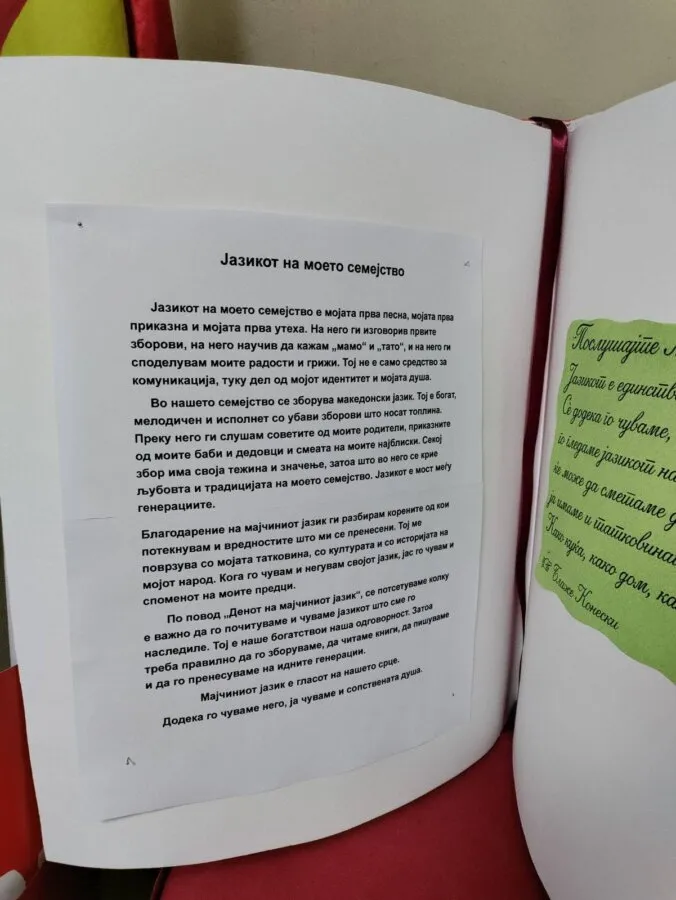 Јазикот на моето семејство
Јазикот на моето семејство е мојата прва песна, мојата прва
приказна и мојата прва утеха. На него ги изговорив првите
зборови, на него научив да кажам „мамо“ и „тато“, и на него ги
споделувам моите радости и грижи. Тој не е само средство за
комуникација, туку дел од мојот идентитет и мојата душа.
Во нашето семејство се зборува македонски јазик. Тој е богат,
мелодичен и исполнет со убави зборови што носат топлина.
Преку него ги слушам советите од моите родители, приказните
од моите баби и дедовци и смеата на моите најблиски. Секој
збор има своја тежина и значење, затоа што во него се крие
љубовта и традицијата на моето семејство. Јазикот е мост меѓу
генерациите.
Благодарение на мајчиниот јазик ги разбирам корените од кои
потекнувам и вредностите што ми се пренесени. Тој ме
поврзува со мојата татковина, со културата и со историјата на
мојот народ. Кога го чувам и негувам својот јазик, јас го чувам и
споменот на моите предци.
По повод „Денот на мајчиниот јазик“, се потсетуваме колку
е важно да го почитуваме и чуваме јазикот што сме го
наследиле. Тој е наше богатствои наша одговорност. Затоа
треба правилно да го зборуваме, да читаме книги, да пишуваме
и да го пренесуваме на идните генерации.
Мајчиниот јазик е гласот на нашето срце.
Додека го чуваме него, ја чуваме и сопствената душа.
Послушајте
Јазикот е единств
Сè додека го чуваме,
го гледаме јазикот на
ќе може да сметаме д
ја имаме и татковина
Како куќа, како дом, ка
Блаже Конески